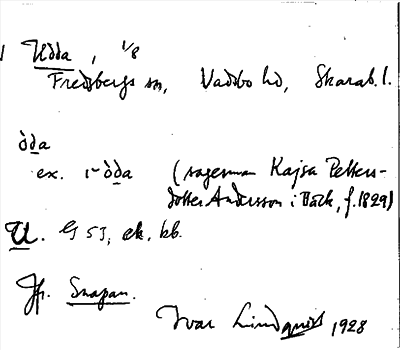 Udda, 1/8
Fredsbergs sn, Vadsbo hd, Skarab. l.
òda
ex. i òda (sagesman Kajsa Petters-
dotter Andersson i Bäck, f. 1829)
U. G 53, ek. kb.
Jfr. Snapan.
Ivar Lindquist 1928